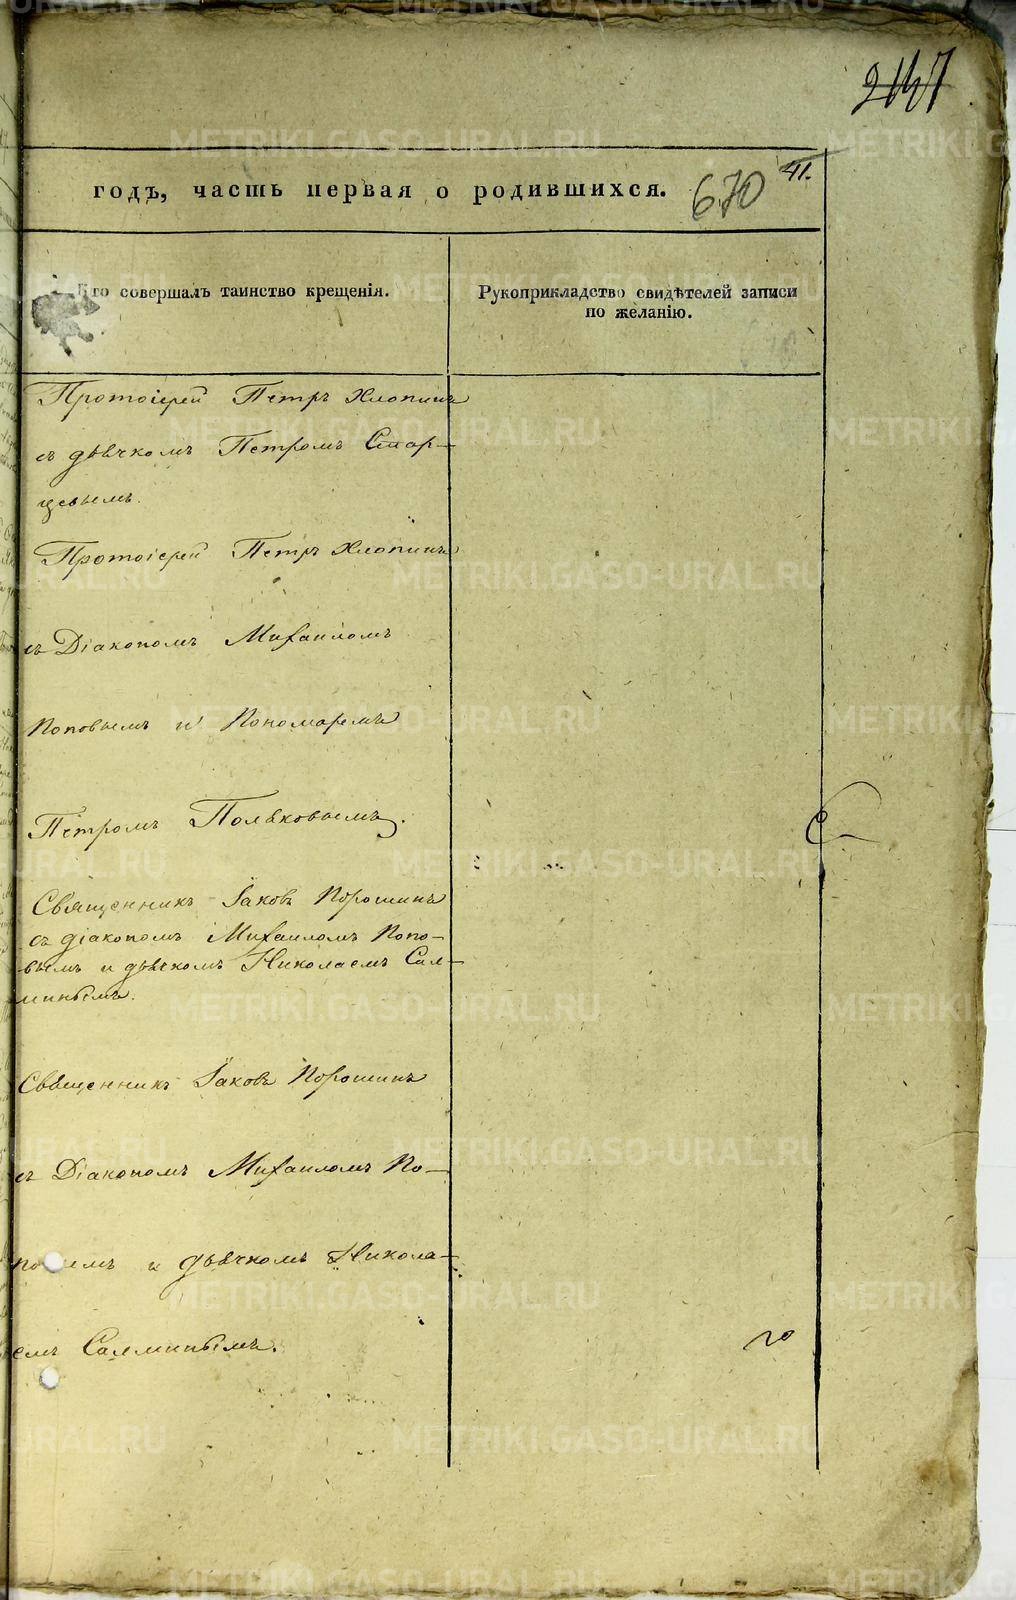 2147
годъ, часть первая о родившихся.
670
41.
Кто совершалъ таинство крещенія.
Рукоприкладство свидѣтелей записи
по желанію.
Протоіерей Петръ Хлопинъ
съ дьячкомъ Петромъ Стар-
цевымъ.
Протоіерей Петръ Хлопинъ
съ Діакономъ Михаиломъ
Поповымъ и Пономаремъ
Петромъ Поляковымъ.
Священникъ Іаковъ Порошинъ
съ діакономъ Михаиломъ Попо-
вымъ и дьячкомъ Николаемъ Сал-
минымъ.
Священникъ Іаковъ Порошинъ
съ Діакономъ Михаиломъ По-
повымъ и дьячкомъ Никола-
емъ Салминымъ.
METRIKI.GASO-URAL.RU